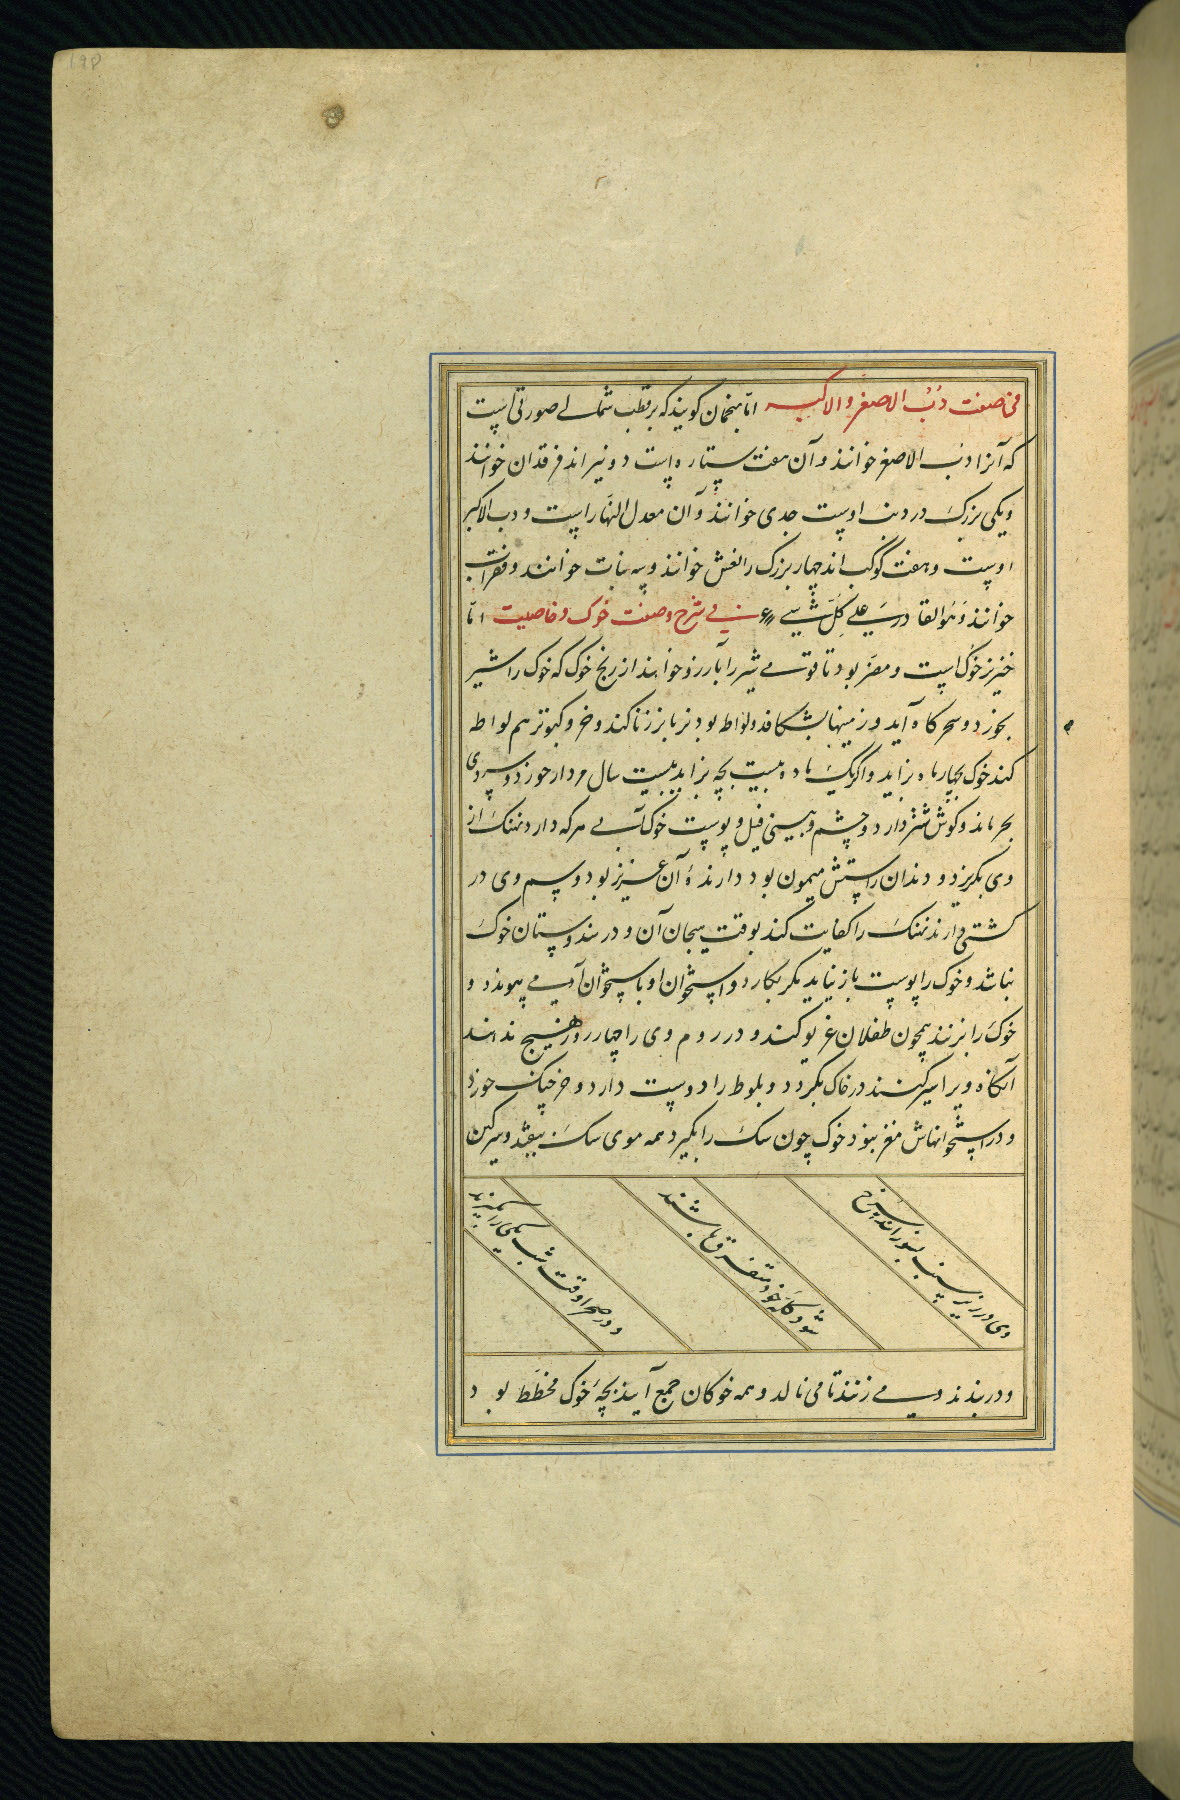 فی صفت دُبّ الاصغر والاکبر امّا منجمان کویند که بر قطب شمالی صورتی است
که آنرا دب الاصغر خوانند و آن هفت ستاره است دو نیر اند فرقدان خوانند
و یکی بزرک در دنب اوست جدی خوانند و آن معدل النهار است و دب الاکبر
اوست و هفت کوکب اند چهار بزرک را نعش خوانند و سه بنات خوانند و
خوانند وَهُو القادر علی کُلّ شیء فی شرح وصفت خوک و خاصیت امّا
خنزیر خوک است و مضرّ بود تا قوتی شیر را بآرزو خواهند از رنج خوک که خوک را شیر
بخورد و سحرکاه آید و زمینها بشکافد و لواط بود نر با نر زنا کند و خر و کبوتر هم لواطه
کند خوک بچهار ماه بزاید و اکر یک ماده بیست بچه بزاید بیست سال مردار خورد و
بحر ماند و کوش شتر دارد و چشم و بینی فیل و پوست خوک آبی هر که دارد نهنک از
وی بکریزد و دندان راستش میمون بود دارندهٔ آن عزیز بود و سم وی در
کشتی دارند نهنک را کفایت کند بوقت هیجان آن و در هندوستان خوک
نباشد و خوک را پوست باز نیاید مکر بکارد و استخوان او باستخوان آدمی پیوندد و
خوک را بزنند همچون طفلان غریو کند و در روم وی را چهار روز هیچ ندهند
آنکاه ویرا سیر کنند در خاک بکردد و بلوط را دوست دارد و خرچنک خورد
و در استخوانهاش مغز نبود خوک چون سک را بکیرد همه موی سک بیفتد و سرکین
وی در زیر سیب بسوزانند سرخ
شود کله خود متفرق باشند
و در صحرا وقت شب یکی را بکیرند
و در بندند وی می زنند تا می نالد و همه خوکان جمع آیند بچهٔ خوک مخطط بود